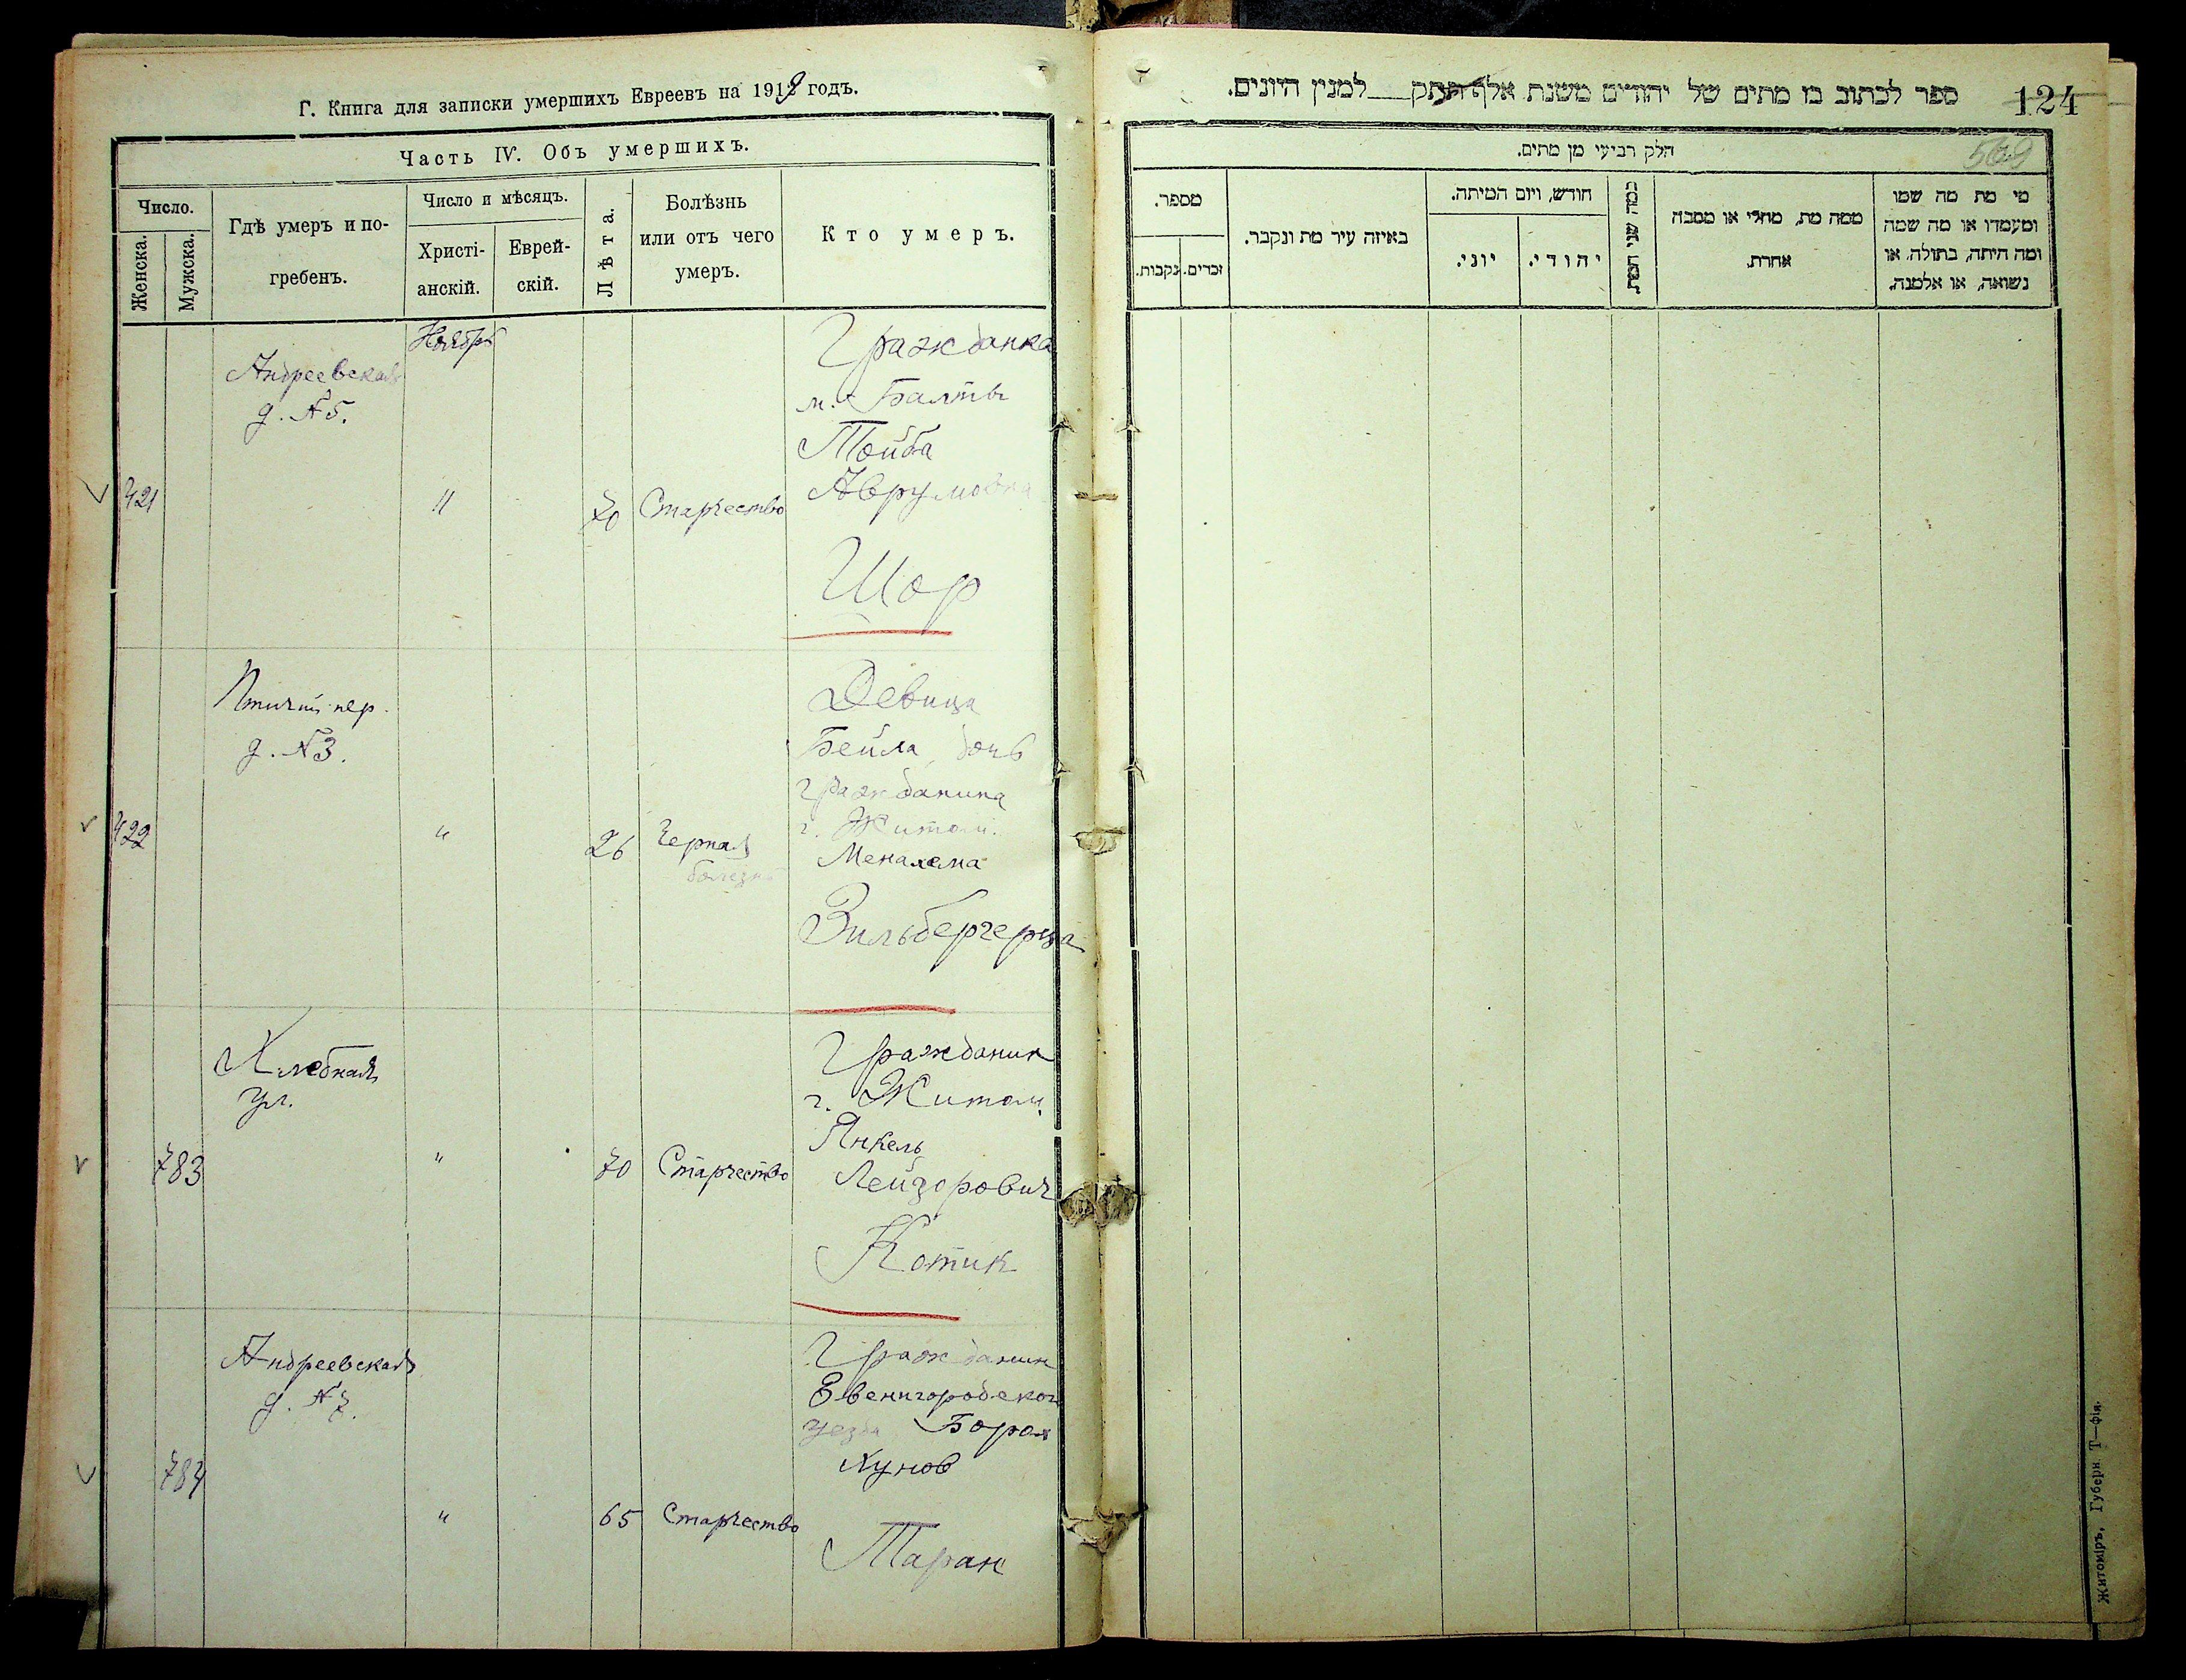 Г. Книга для записки умершихъ Евреевъ на 1919 годъ.
Часть IV. Объ умершихъ.
Число.
Женска.
Мужска.
Гдѣ умеръ и по-
гребенъ.
Число и мѣсяцъ.
Христі-
анскій.
Еврей-
скій.
Лѣта.
Болѣзнь
или отъ чего
умеръ.
Кто умеръ.
Ноябрь
Андреевская
д. №5.
421
11
70
Старчество
Гражданка
м. Балты
Тойба
Аврумовна
Шор
Птичий пер.
д. №3.
422
"
26
Черная
болезнь
Девица
Бейла, дочь
гражданина
г. Житом.
Менахема
Зильбергерца
Хлебная
ул.
783
"
70
Старчество
Гражданин
г. Житом.
Янкель
Лейзорович
Котик
Андреевская
д. №7.
784
"
65
Старчество
Гражданин
Звенигородског
уезда Борох
Хунов
Таран
124
ספר לכתוב בו מתים של יהודים משנת אלף תתק למנין היונים.
569
חלק רביעי מן מתים.
מספר.
נקבות.
זכרים.
באיזה עיר מת ונקבר.
חודש, ויום המיתה.
יוני.
יהודי.
כמה שני המת
ממה מת, מחלי או מסבה
אחרת.
מי מת מה שמו
ומעמדו או מה שמה
ומה היתה, בתולה, או
נשואה, או אלמנה.
Житоміръ, Губерн. Т—фія.